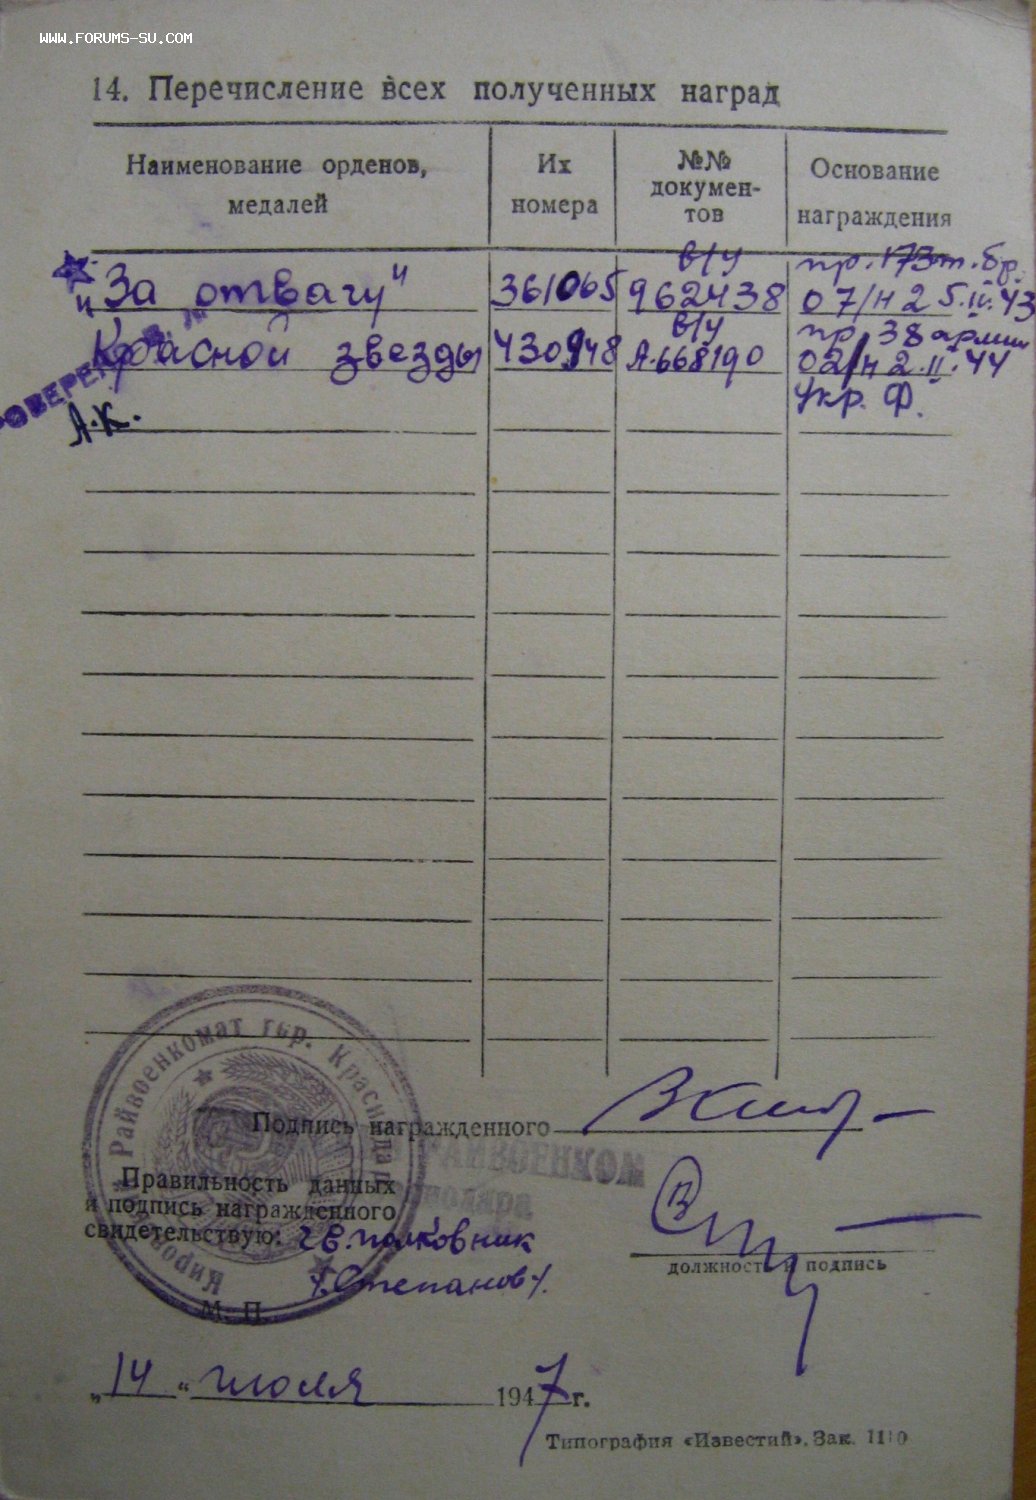 WWW.FORUMS-SU.COM
14. Перечисление всех полученных наград
Наименование орденов, медалей
Их номера
№№ докумен-тов
Основание награждения
"За отвагу" 361065 в/у 962438 пр. 173 т. бр. 07/н 25.IV.43
Красной звезды 430948 в/у А.668190 пр. 38 армии 02/н 2.II.44 Укр. Ф.
А.К.
Подпись награжденного
РАЙВОЕНКОМ
Правильность данных
и подпись награжденного
свидетельствую: гв. полковник
/Степанов/.
должность и подпись
М. П.
Райвоенкомат гор. Краснодар
Киров
„14“ июля 1947 г.
Типография «Известий». Зак.